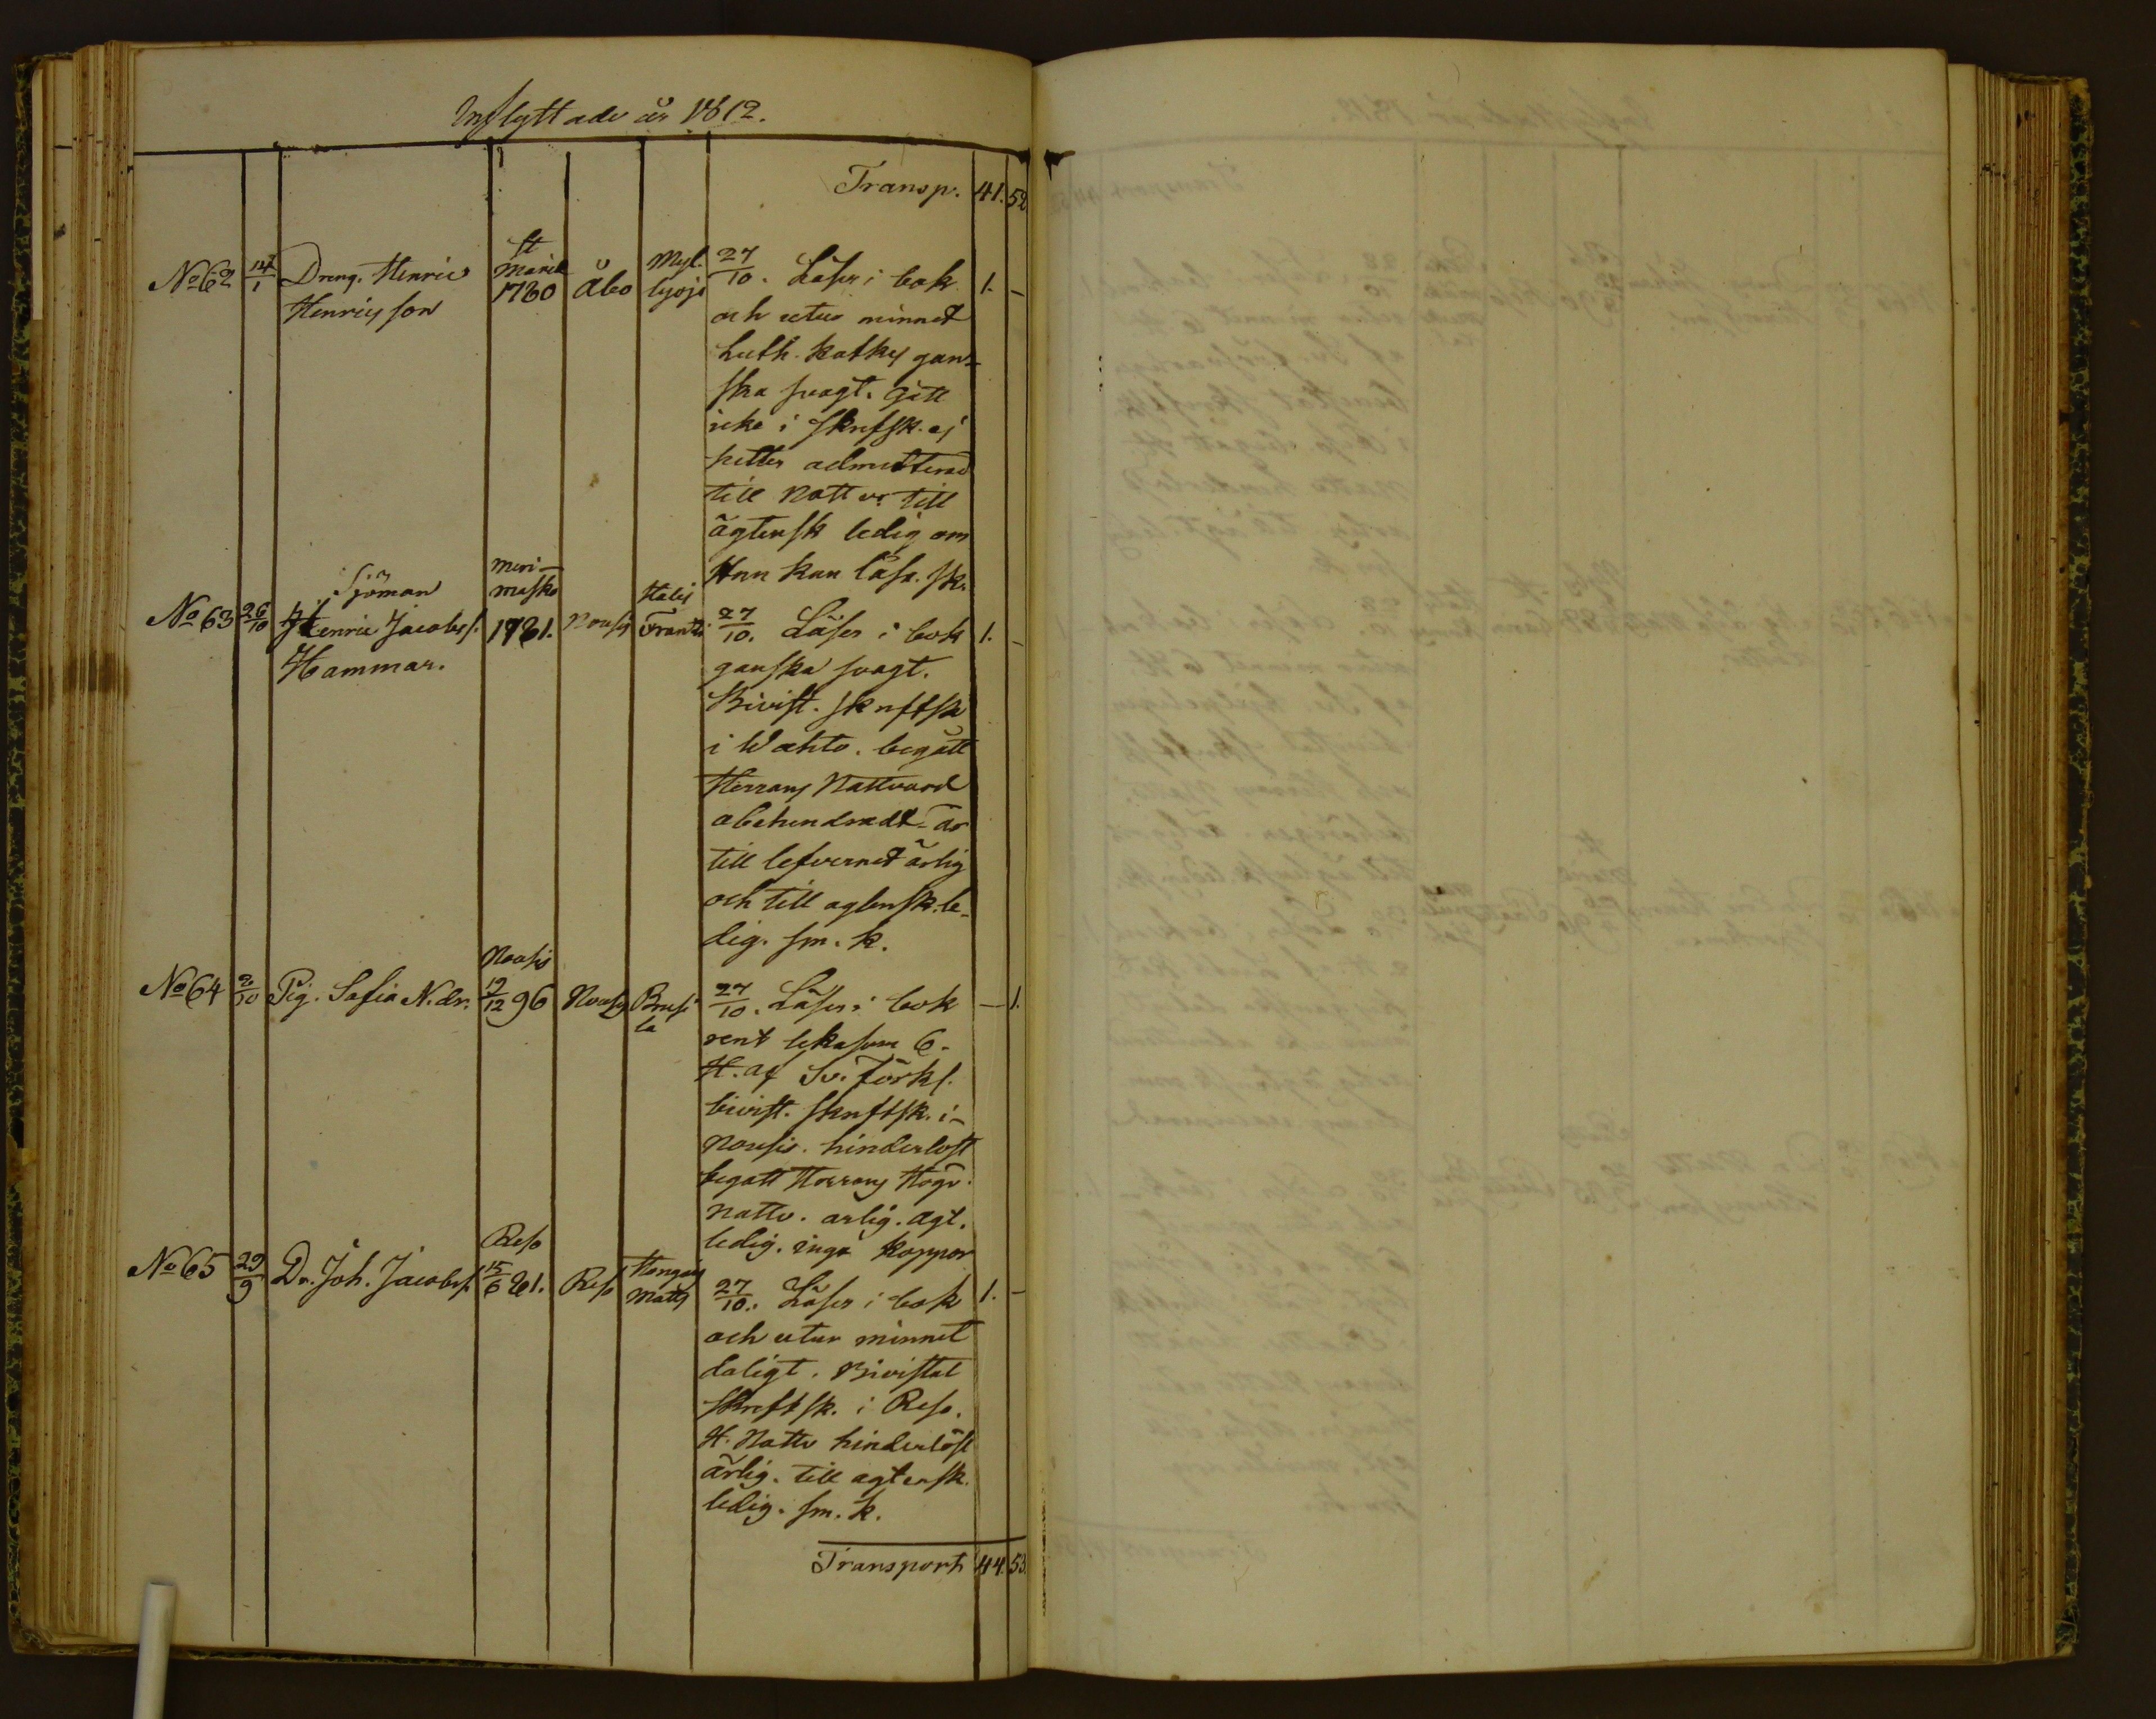 Inflyttade år 1812.
Transp. 41. 52.
No 62 14/1 Dreng. Henric Henricsson St Marie 1780 Åbo Myl. 27/10. Läser i bok 1. -
och utur minnet
Luth. Katkes gan-
ska svagt. Gått
icke i Skrifsk. ej
heller admitterad
till Nattv. till
ägtensk ledig om
Han kan läsa. sk.
No 63 26/10 Sjöman Henric Jacobss. Hammar. Meri- masko 1781. Nousis Frantsi 27/10. Läser i bok 1. -
ganska svagt.
Bivist. skriftsk
i Wahto. begått
Herrans Nattvard
obehindradt är
till lefvernet ärlig
och till agtensk. le-
dig. sm. k.
No 64 2/10 Pig. Safia N. dr. Nousis 12/12 96 Nousis 27/10. Läser i bok - 1.
rent lekasom 6.
H. af Sv. Förkl.
bivist. skriftsk. i-
Nousis. hinderlöst
begått Herrans Högv.
nattv. arlig. agt.
ledig. inga koppor
No 65 29/9 Dr. Joh. Jacobss. Reso 15/6 81. Reso Matts 27/10. Läser i bok 1. -
och utur minnet
daligt. Bivistat
skriftsk. i Reso.
H. Nattv hinderlöst
ärlig. till agtensk.
ledig. sm. k.
Transport 44. 53.